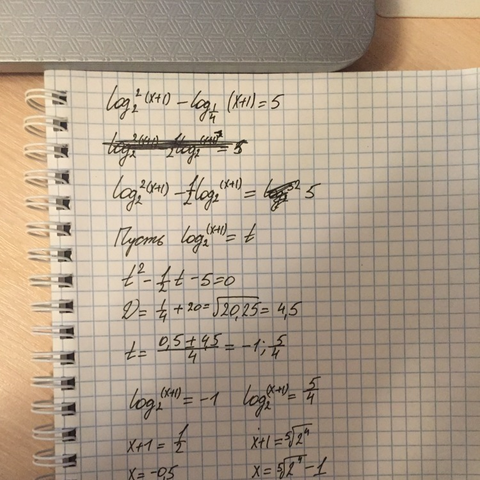 log₂²(x+1) − log_{1/4}(x+1) = 5
log₂²(x+1) − ½log₂(x+1) = 5
Пусть log₂(x+1) = t
t² − ½t − 5 = 0
D = ¼ + 20 = √20,25 = 4,5
t = (0,5 ± 4,5)/4 = −1; 5/4
log₂(x+1) = −1 log₂(x+1) = 5/4
x+1 = ½ x+1 = ⁵√2⁴
x = −0,5 x = ⁵√2⁴ − 1